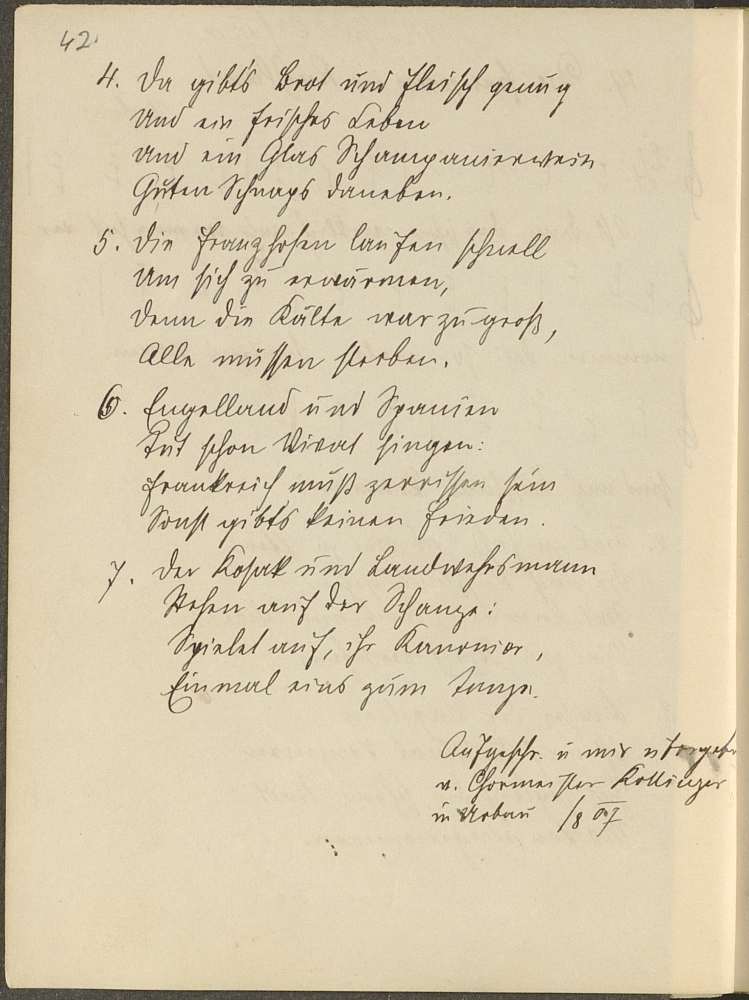 42.
4. Da gibt's Brot und Fleisch genug
Und ein frisches Leben
Und ein Glas Schampanierwein
Guten Schnaps daneben.
5. Die Franzhosen laufen schnell
Um sich zu erwärmen,
Denn die Kälte war zu groß,
Alle müssen sterben.
6. Engelland und Spanien
Tut schon Vivat singen:
Frankreich muß zerrissen sein
Sonst gibt's keinen Frieden.
7. Der Kosak und Landwehrsmann
Stehen auf der Schanze:
Spielet auf, ihr Kanonier,
Einmal eins zum Tanze.
Aufgeschr. u mir
v. Chormeister Kollinger
in Urbau /8 07